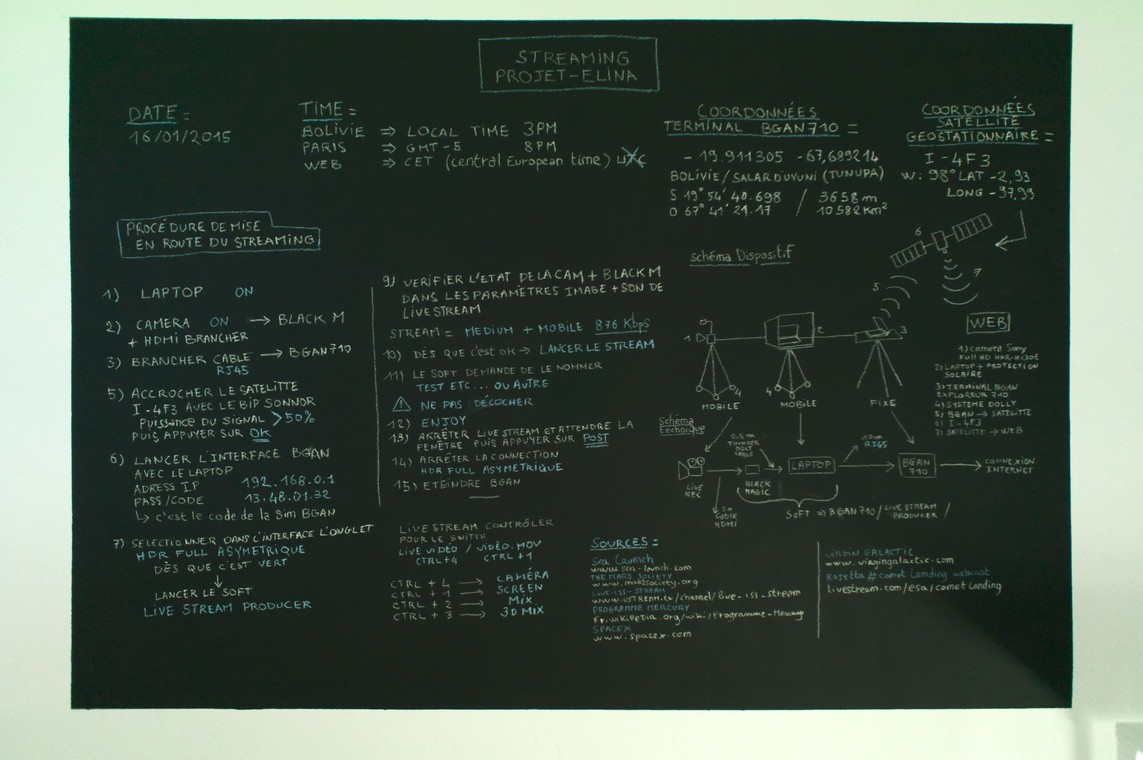 STREAMING
PROJET-ELINA
DATE =
16/01/2015
TIME =
BOLIVIE ⇒ LOCAL TIME 3PM
PARIS ⇒ GMT-5 8PM
WEB ⇒ CET (central European time)
COORDONNÉES
TERMINAL BGAN710 =
- 19.911305 -67,689214
BOLIVIE/SALAR D'UYUNI (TUNUPA)
S 19° 54' 40.698 / 3658m
O 67° 41' 21.17 10582km²
COORDONNÉES
SATELLITE
GEOSTATIONNAIRE =
I-4F3
W: 98° LAT -2,93
LONG -97,99
PROCÉDURE DE MISE
EN ROUTE DU STREAMING
1) LAPTOP ON
2) CAMERA ON → BLACK M
+ HDMI BRANCHER
3) BRANCHER CABLE → BGAN710
RJ45
5) ACCROCHER LE SATELITTE
I-4F3 AVEC LE BIP SONNOR
PUISSANCE DU SIGNAL >50%
PUIS APPUYER SUR OK
6) LANCER L'INTERFACE BGAN
AVEC LE LAPTOP
ADRESS IP 192.168.0.1
PASS/CODE 13.48.01.32
↳ c'est le code de la Sim BGAN
7) SELECTIONNER DANS L'INTERFACE L'ONGLET
HDR FULL ASYMETRIQUE
DÈS QUE C'EST VERT
↓
LANCER LE SOFT
LIVE STREAM PRODUCER
9) VERIFIER L'ETAT DE LA CAM + BLACK M
DANS LES PARAMÈTRES IMAGE + SON DE
LIVESTREAM
STREAM = MEDIUM + MOBILE 876 Kbps
10) DÈS QUE c'est OK → LANCER LE STREAM
11) LE SOFT DEMANDE DE LE NOMMER
TEST ETC... OU AUTRE
⚠ NE PAS DÉCOCHER
12) ENJOY
13) ARRÊTER LIVE STREAM ET ATTENDRE LA
FENÊTRE PUIS APPUYER SUR POST
14) ARRÊTER LA CONNECTION
HDR FULL ASYMETRIQUE
15) ETEINDRE BGAN
LIVE STREAM CONTRÔLER
POUR LE SWITCH
LIVE VIDÉO / VIDÉO.MOV
CTRL+4 CTRL+1
CTRL + 4 → CAMÉRA
CTRL + 1 → SCREEN
CTRL + 2 → MIX
CTRL + 3 → 3D MIX
Schéma Dispositif
6
5
7
1
2
3
4
4
MOBILE
MOBILE
FIXE
WEB
1) camera Sony
2) LAPTOP + PROTECTION
SOLAIRE
3) TERMINAL BGAN
EXPLORSUR 710
4) SYSTEME DOLLY
5) BGAN → SATELITTE
6) I-4F3
7) SATELITTE → WEB
Schéma
technique
CABLE
RJ45
LIVE
REC
BLACK
MAGIC
LAPTOP
BGAN
710
CONNEXION
INTERNET
Cable
HDMI
SOFT ⇒ BGAN710 / LIVE STREAM
PRODUCER /
SOURCES =
Sea Launch
www.sea-launch.com
THE MARS SOCIETY
www.marssociety.org
LIVE-ISS-STREAM
www.USTREAM.tv/channel/live-iss-stream
PROGRAMME MERCURY
Fr.wikipedia.org/wiki/Programme-Mercury
SPACEX
www.spacex.com
VIRGIN GALACTIC
www.virgingalactic.com
Rosetta #comet Landing webcast
livestream.com/esa/cometlanding